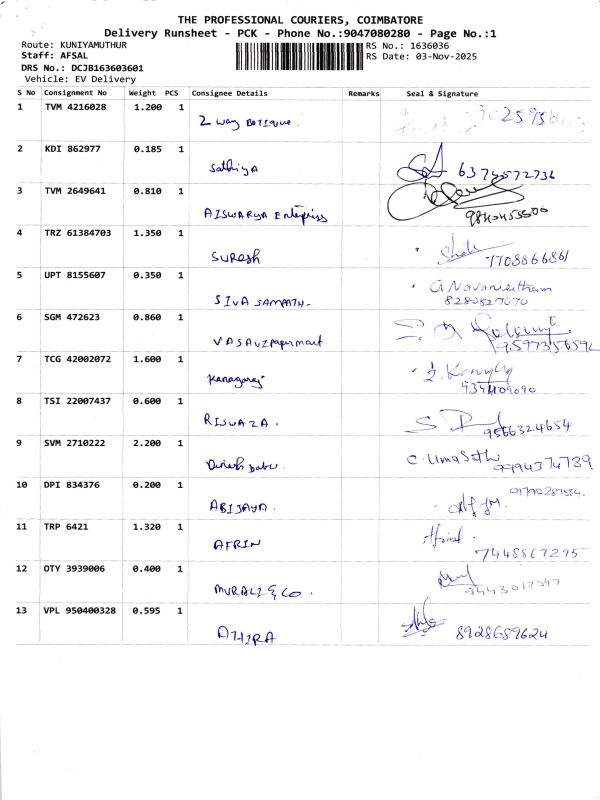 THE PROFESSIONAL COURIERS, COIMBATORE
Delivery Runsheet - PCK - Phone No.:9047080280 - Page No.:1
Route: KUNIYAMUTHUR RS No.: 1636036
Staff: AFSAL RS Date: 03-Nov-2025
DRS No.: DCJB163603601
Vehicle: EV Delivery
S No Consignment No Weight PCS Consignee Details Remarks Seal & Signature
1 TVM 4216028 1.200 1
2 way BOTIQUE.
2 KDI 862977 0.185 1
Sathiya 6374572736
3 TVM 2649641 0.810 1
AISWARYA Enterpriss
4 TRZ 61384703 1.350 1
SURESH 7708866861
5 UPT 8155607 0.350 1 G Navaneetham
SIVA SAMPATH- 8280527070
6 SGM 472623 0.860 1
VASAVI papermart
7 TCG 42002072 1.600 1
Kanagaraj
8 TSI 22007437 0.600 1
RISWAZA. 9566324654
9 SVM 2710222 2.200 1 C. Uma Sathi
Dinesh babu. 9994374739
10 DPI 834376 0.200 1
ABIJAYA.
11 TRP 6421 1.320 1
AFRIN 7448867295
12 OTY 3939006 0.400 1
MURALI & CO. 9443017597
13 VPL 950400328 0.595 1
ATHIRA 8928689624